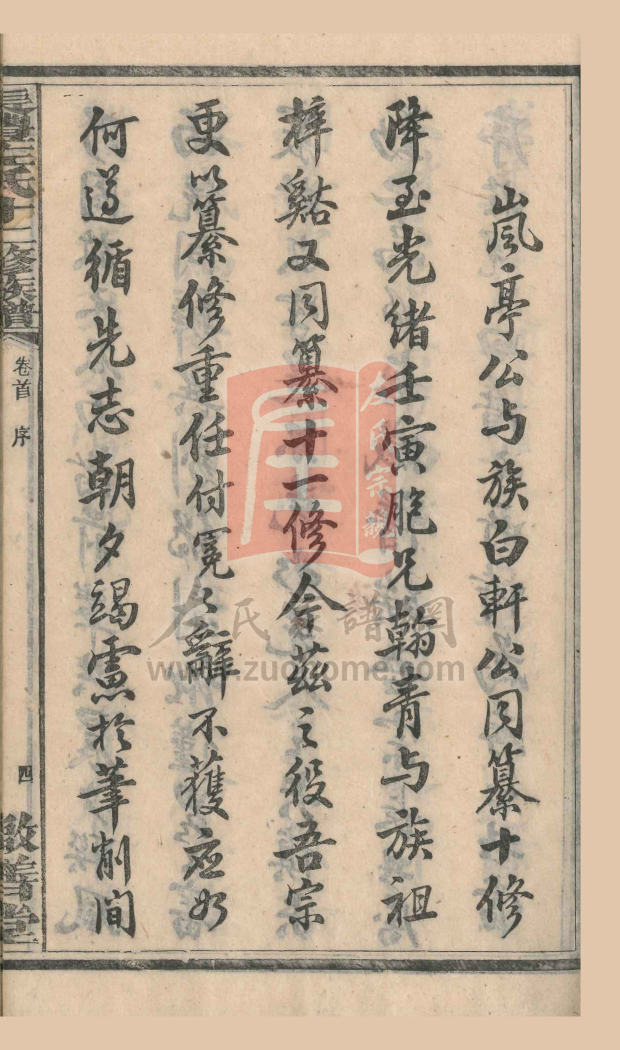 嵐亭公与族白軒公同纂十修
降至光緒壬寅胞兄翰青与族祖
梓谿又同纂十一修今茲之役吾宗
更以纂修重任付冕冕辭不獲应如
何遵循先志朝夕竭慮於筆削間
左氏十二修族譜
卷首 序
四
敬善堂
左氏宗譜
左氏譜網
www.zuojiome.com